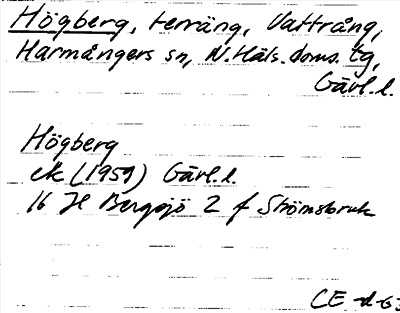 Högberg, terräng, Vattrång,
Harmångers sn, N. Häls. doms. tg,
Gävl. l.
Högberg
ek (1959) Gävl. l.
16 H Bergsjö 2 f Strömsbruk
CE